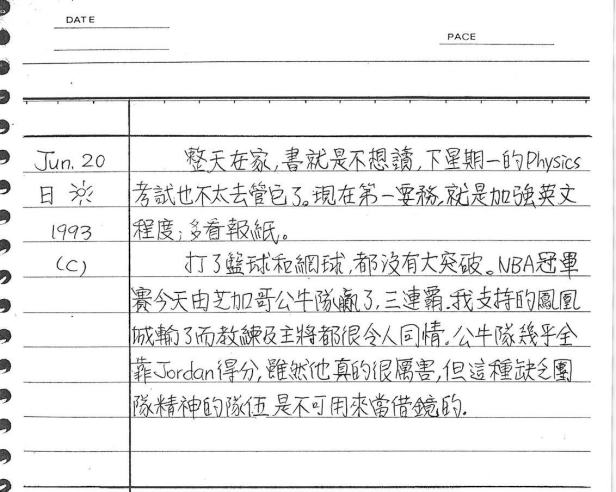 DATE
PACE
Jun. 20
日
1993
(C)
整天在家,書就是不想讀,下星期一的Physics
考試也不太去管它了。現在第一要務,就是加強英文
程度;多看報紙。
打了籃球和網球,都沒有大突破。NBA冠軍
賽今天由芝加哥公牛隊贏了,三連霸.我支持的鳳凰
城輸了而教練及主將都很令人同情.公牛隊幾乎全
靠Jordan得分,雖然他真的很厲害,但這種缺乏團
隊精神的隊伍是不可用來當借鏡的.